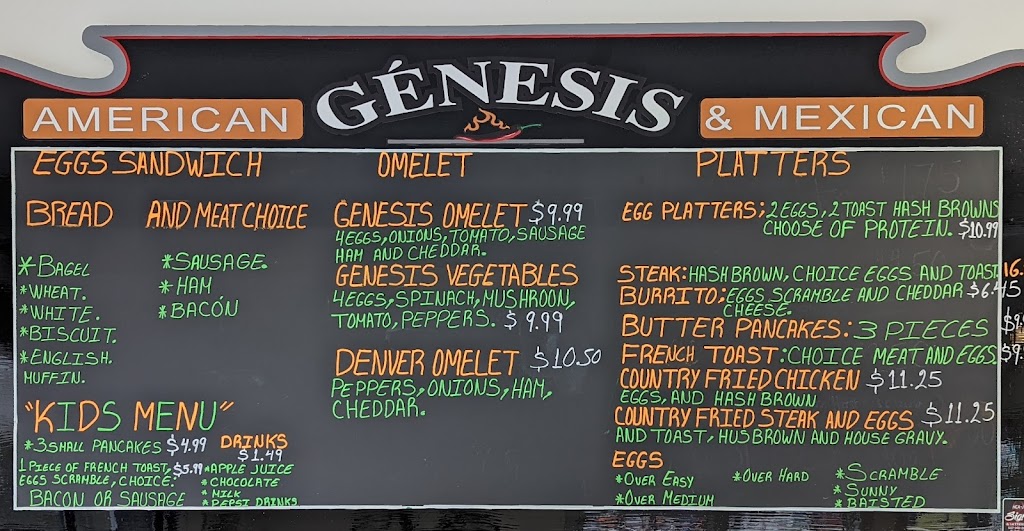 GÉNESIS
AMERICAN
& MEXICAN
EGGS SANDWICH
BREAD AND MEAT CHOICE
*BAGEL
*WHEAT.
*WHITE.
*BISCUIT.
*ENGLISH.
MUFFIN.
*SAUSAGE.
*HAM
*BACÓN
"KIDS MENU"
*3 SMALL PANCAKES $4.99
1 PIECE OF FRENCH TOAST, $5.99
EGGS SCRAMBLE, CHOICE:
BACON OR SAUSAGE
DRINKS
$1.49
*APPLE JUICE
*CHOCOLATE
*MILK
*PEPSI DRINKS
OMELET
GENESIS OMELET $9.99
4EGGS, ONIONS, TOMATO, SAUSAGE
HAM AND CHEDDAR.
GENESIS VEGETABLES
4EGGS, SPINACH, MUSHROON,
TOMATO, PEPPERS. $9.99
DENVER OMELET $10.50
PEPPERS, ONIONS, HAM,
CHEDDAR.
PLATTERS
EGG PLATTERS; 2 EGGS, 2 TOAST HASH BROWNS
CHOOSE OF PROTEIN. $10.99
STEAK: HASH BROWN, CHOICE EGGS AND TOAST 16.
BURRITO; EGGS SCRAMBLE AND CHEDDAR $6.45
CHEESE.
BUTTER PANCAKES: 3 PIECES
FRENCH TOAST: CHOICE MEAT AND EGGS. $9.
COUNTRY FRIED CHICKEN $11.25
EGGS, AND HASH BROWN
COUNTRY FRIED STEAK AND EGGS $11.25
AND TOAST, HUSBROWN AND HOUSE GRAVY.
EGGS
*OVER EASY
*OVER MEDIUM
*OVER HARD
*SCRAMBLE
*SUNNY
*BAISTED